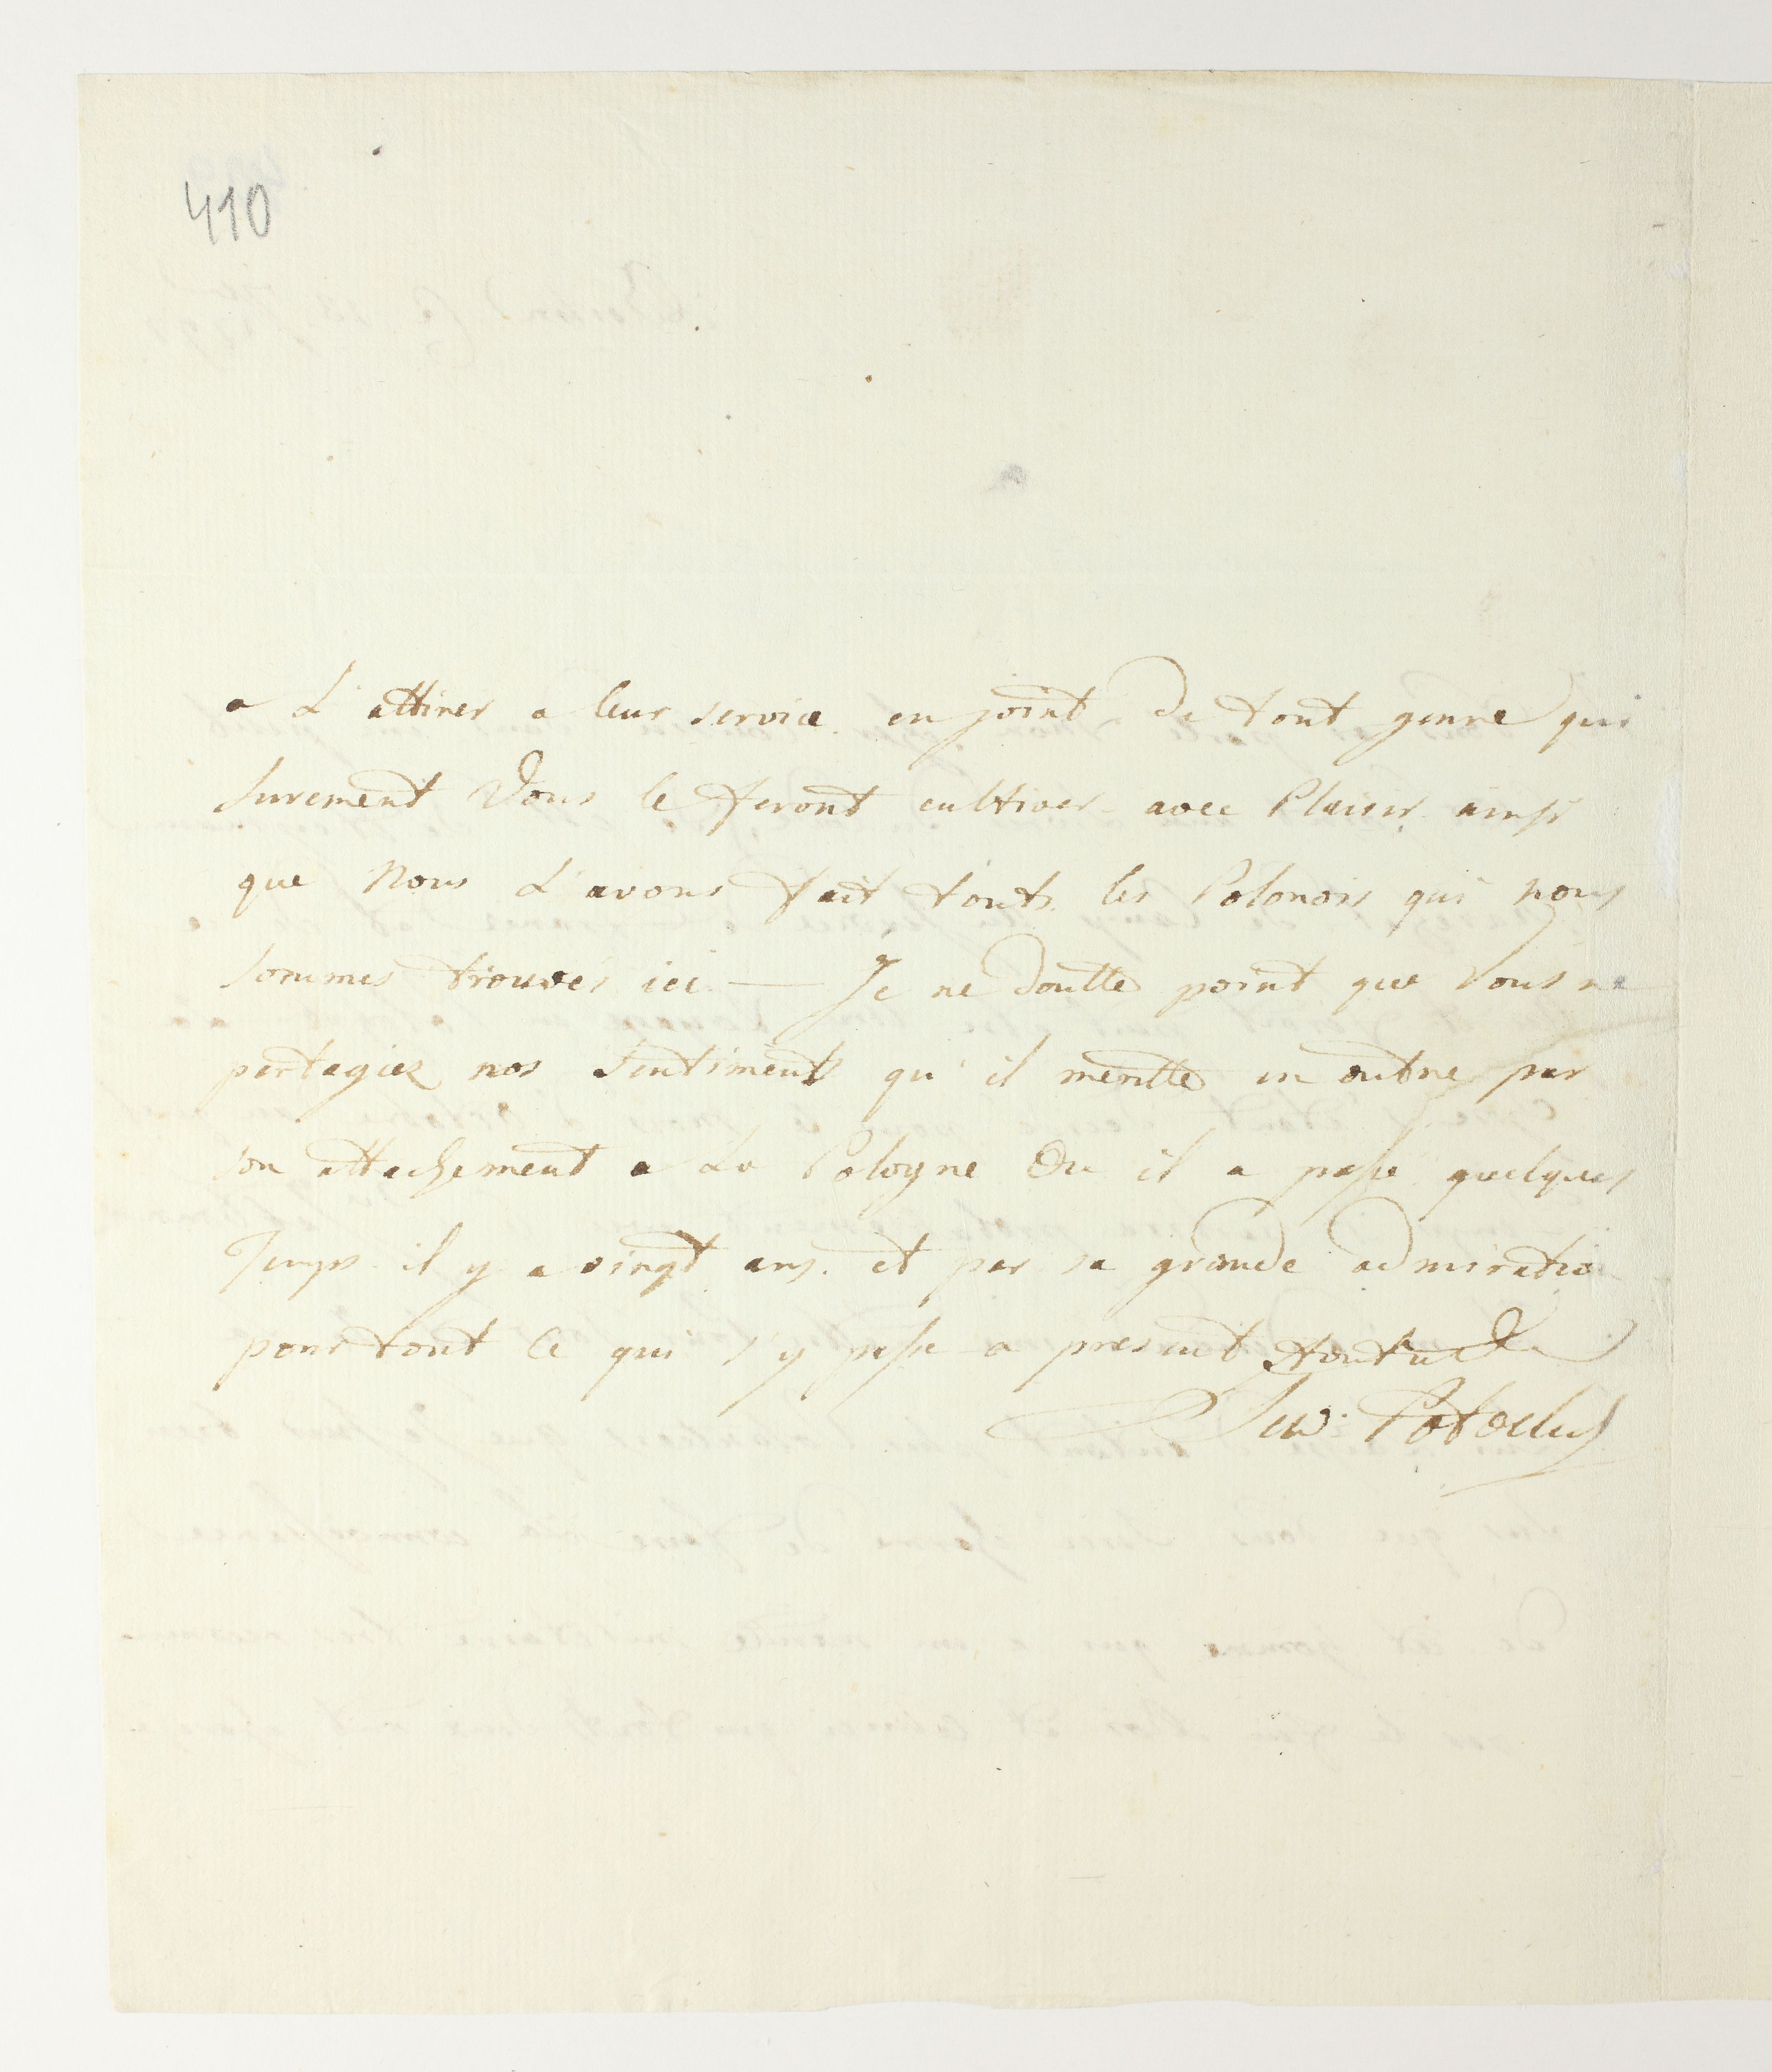 410
a L'attirer a leur service. en joint de tout genre qui
surement Vous le feront cultiver avec Plaisir ainsi
que Nous L'avons fait touts les Polonois qui nous
sommes trouvés ici — Je ne doutte point que Vous ne
partagiez nos Sentiments qu'il meritte en outre par
son attachement a La Pologne Ou il a passé quelques
Temps il y a vingt ans. et par sa grande admiratio
pour tout Ce qui s'y passe a present
Sew: Potocki